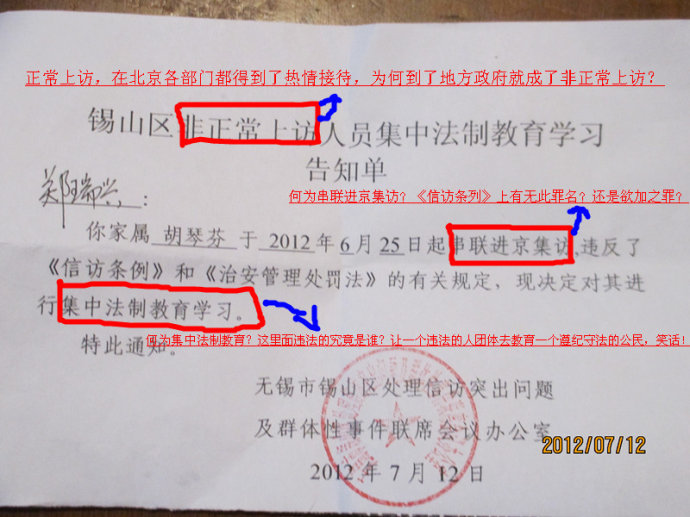 正常上访，在北京各部门都得到了热情接待，为何到了地方政府就成了非正常上访？
锡山区非正常上访人员集中法制教育学习
告知单
何为串联进京集访？《信访条列》上有无此罪名？还是欲加之罪？
郑瑞兴：
你家属 胡琴芬 于 2012 年 6 月 25 日起串联进京集访,违反了
《信访条例》和《治安管理处罚法》的有关规定，现决定对其进
行集中法制教育学习。
何为集中法制教育？这里面违法的究竟是谁？让一个违法的人团体去教育一个遵纪守法的公民，笑话！
特此通知。
无锡市锡山区处理信访突出问题
及群体性事件联席会议办公室
2012 年 7 月 12 日
2012/07/12